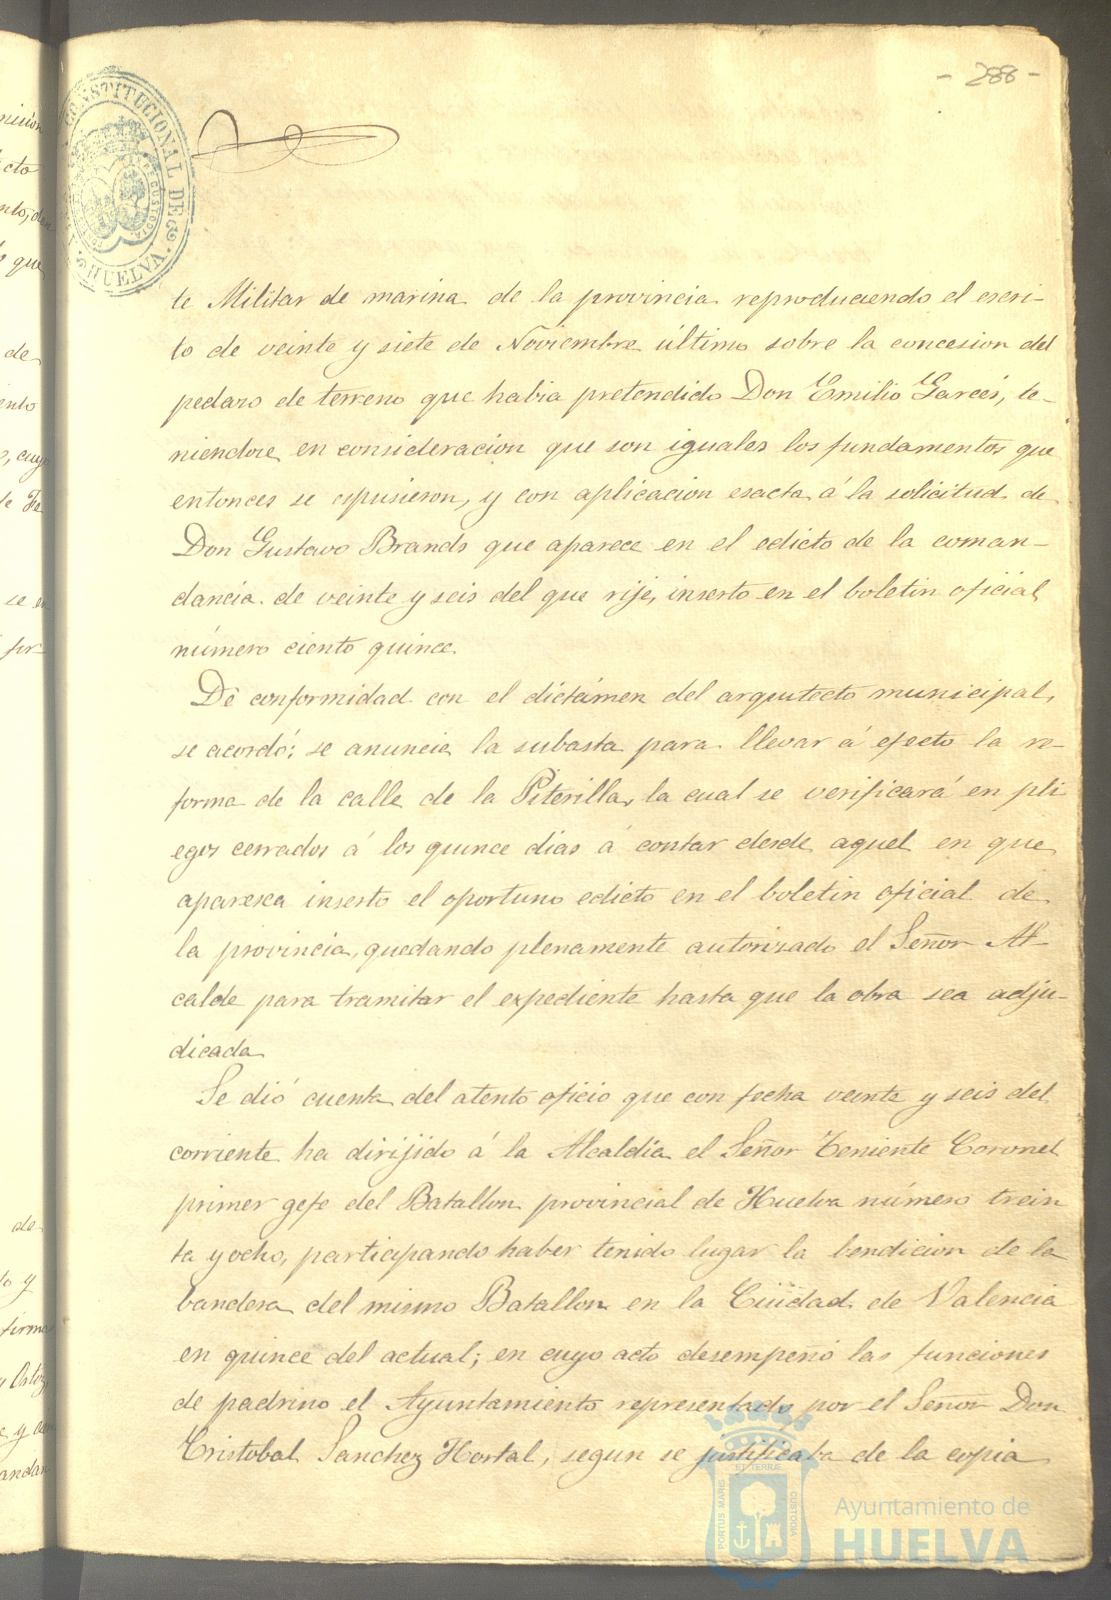 - 288 -
CONSTITUCIONAL DE
HUELVA
te Militar de marina de la provincia reproduciendo el escri-
to de veinte y siete de Noviembre último sobre la concesion del
pedazo de terreno que habia pretendido Don Emilio Garcés, te-
niendose en consideracion que son iguales los fundamentos que
entonces se espusieron, y con aplicacion esacta á la solicitud de
Don Gustavo Brands que aparece en el edicto de la coman-
dancia de veinte y seis del que rije, inserto en el boletin oficial
número ciento quince.
De conformidad con el dictámen del arquitecto municipal,
se acordó: se anuncie la subasta para llevar á efecto la re-
forma de la calle de la Piterilla, la cual se verificará en pli
egos cerrados á los quince dias á contar desde aquel en que
aparesca inserto el oportuno edicto en el boletin oficial de
la provincia, quedando plenamente autorizado el Señor Al-
calde para tramitar el expediente hasta que la obra sea adju-
dicada
Se dió cuenta del atento oficio que con fecha veinte y seis del
corriente ha dirijido á la Alcaldia el Señor Teniente Coronel
primer gefe del Batallon provincial de Huelva número trein
ta y ocho, participando haber tenido lugar la bendicion de la
bandera del mismo Batallon en la Ciudad de Valencia
en quince del actual; en cuyo acto desempeñó las funciones
de padrino el Ayuntamiento representado por el Señor Don
Cristobal Sanchez Hortal, segun se justificaba de la copia
PORTUS MARIS
ET TERRÆ
CUSTODIA
Ayuntamiento de
HUELVA